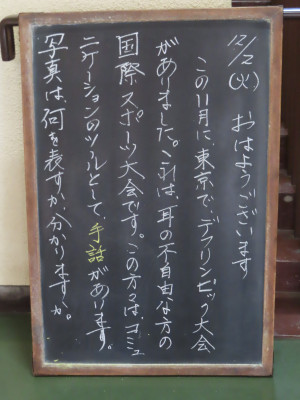 12/2(火) おはようございます
この11月に、東京で、デフリンピック大会
がありました。これは、耳の不自由な方の
国際スポーツ大会です。この方々は、コミュ
ニケーションのツールとして、手話があります。
写真は、何を表すか、分かりますか。